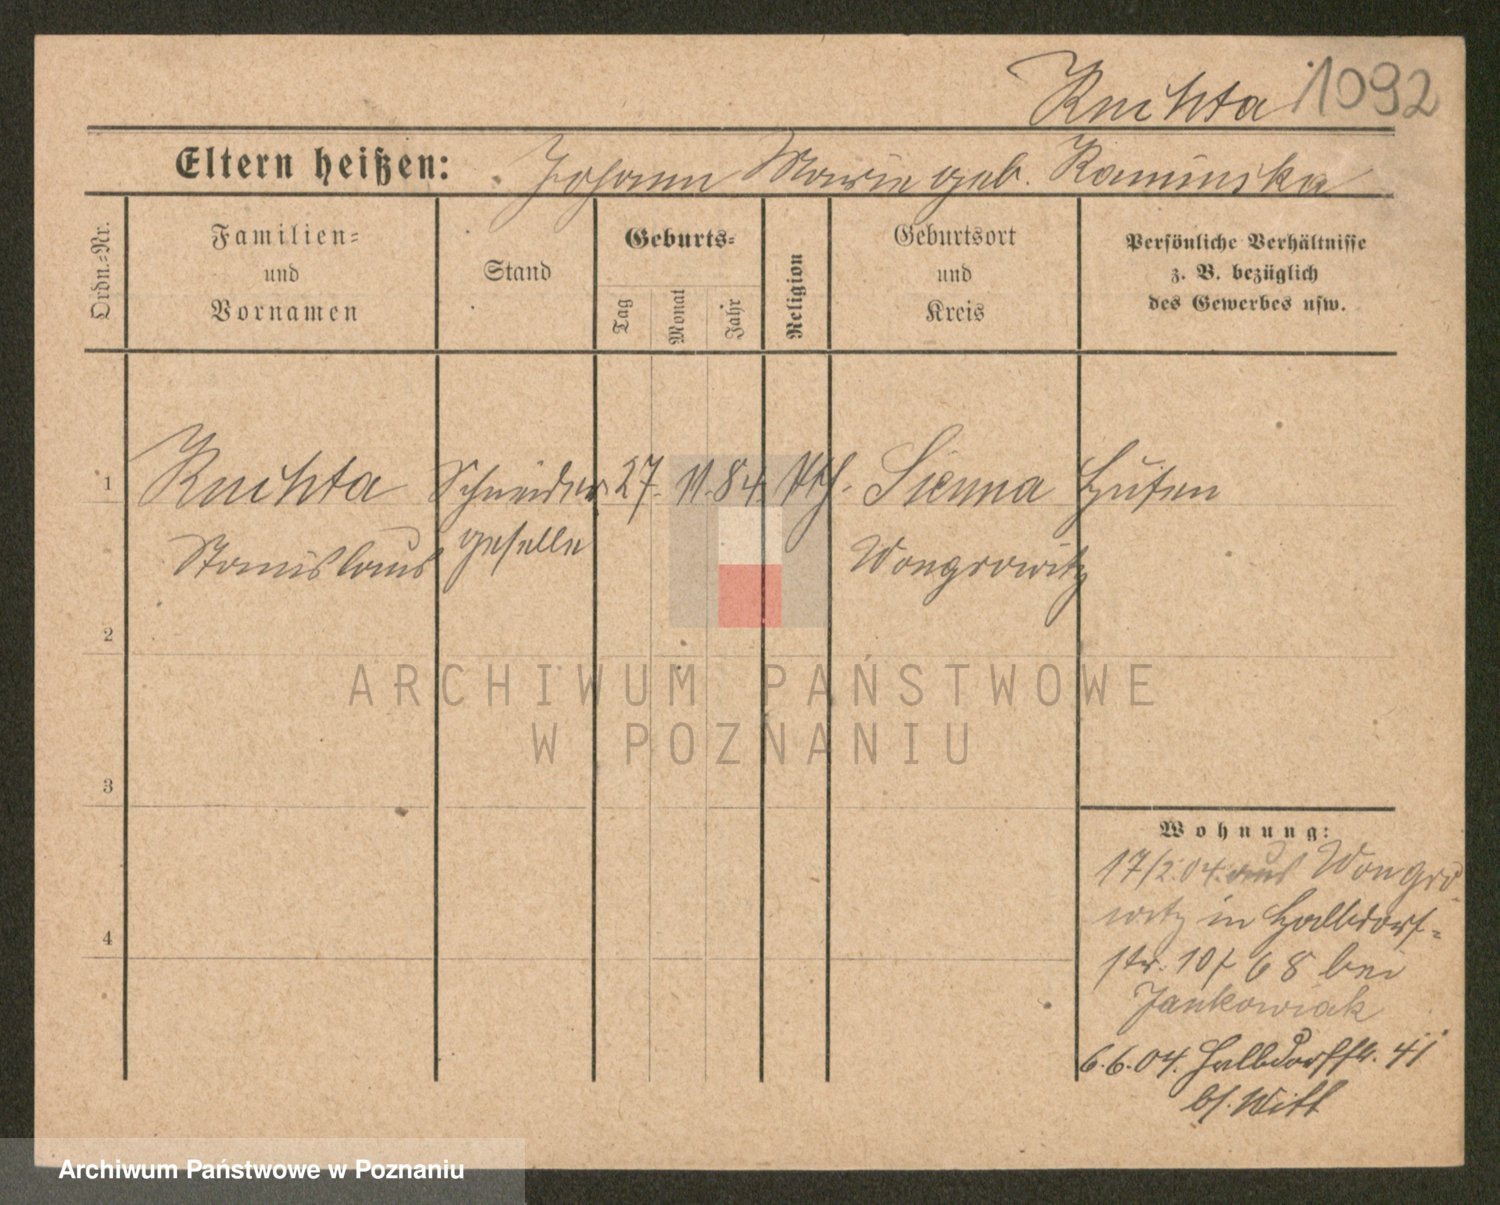 Ruchta 1092
Eltern heißen: Johann Marie geb. Kaminska
Ordn.-Nr.
Familien-
und
Vornamen
Stand
Geburts-
Tag
Monat
Jahr
Religion
Geburtsort
und
Kreis
Persönliche Verhältnisse
z. B. bezüglich
des Gewerbes usw.
1 Ruchta Schneider 27. 11. 84. kth. Sienna
Stanislaus geselle Wongrowitz
2
ARCHIWUM PAŃSTWOWE
W POZNANIU
3
Wohnung:
17/2.04. aus Wongro
witz in Halbdorf-
str. 10 68 bei
Jankowiak
4
6.6.04. Halbdorfstr. 41
b/. Witt
Archiwum Państwowe w Poznaniu